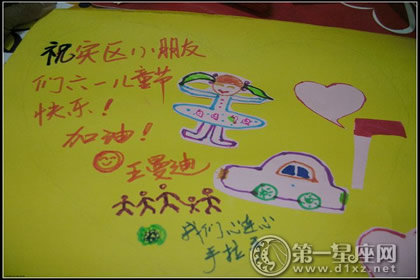 祝灾区小朋友
们六一儿童节
快乐！
加油！
王曼迪
我们心连心
手拉
第一星座网
www.d1xz.net